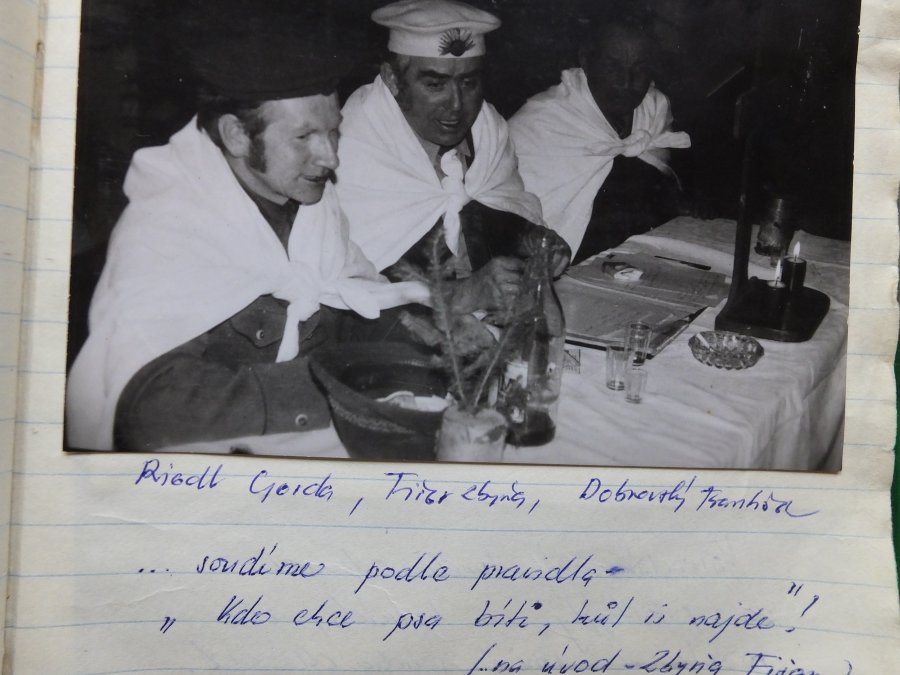 Riedl Gerda, Fišer Zbyňa, Dobrovský
... soudíme podle pravidla -
„Kdo chce psa bíti, hůl si najde"!
(na úvod - Zbyňa Fišer)